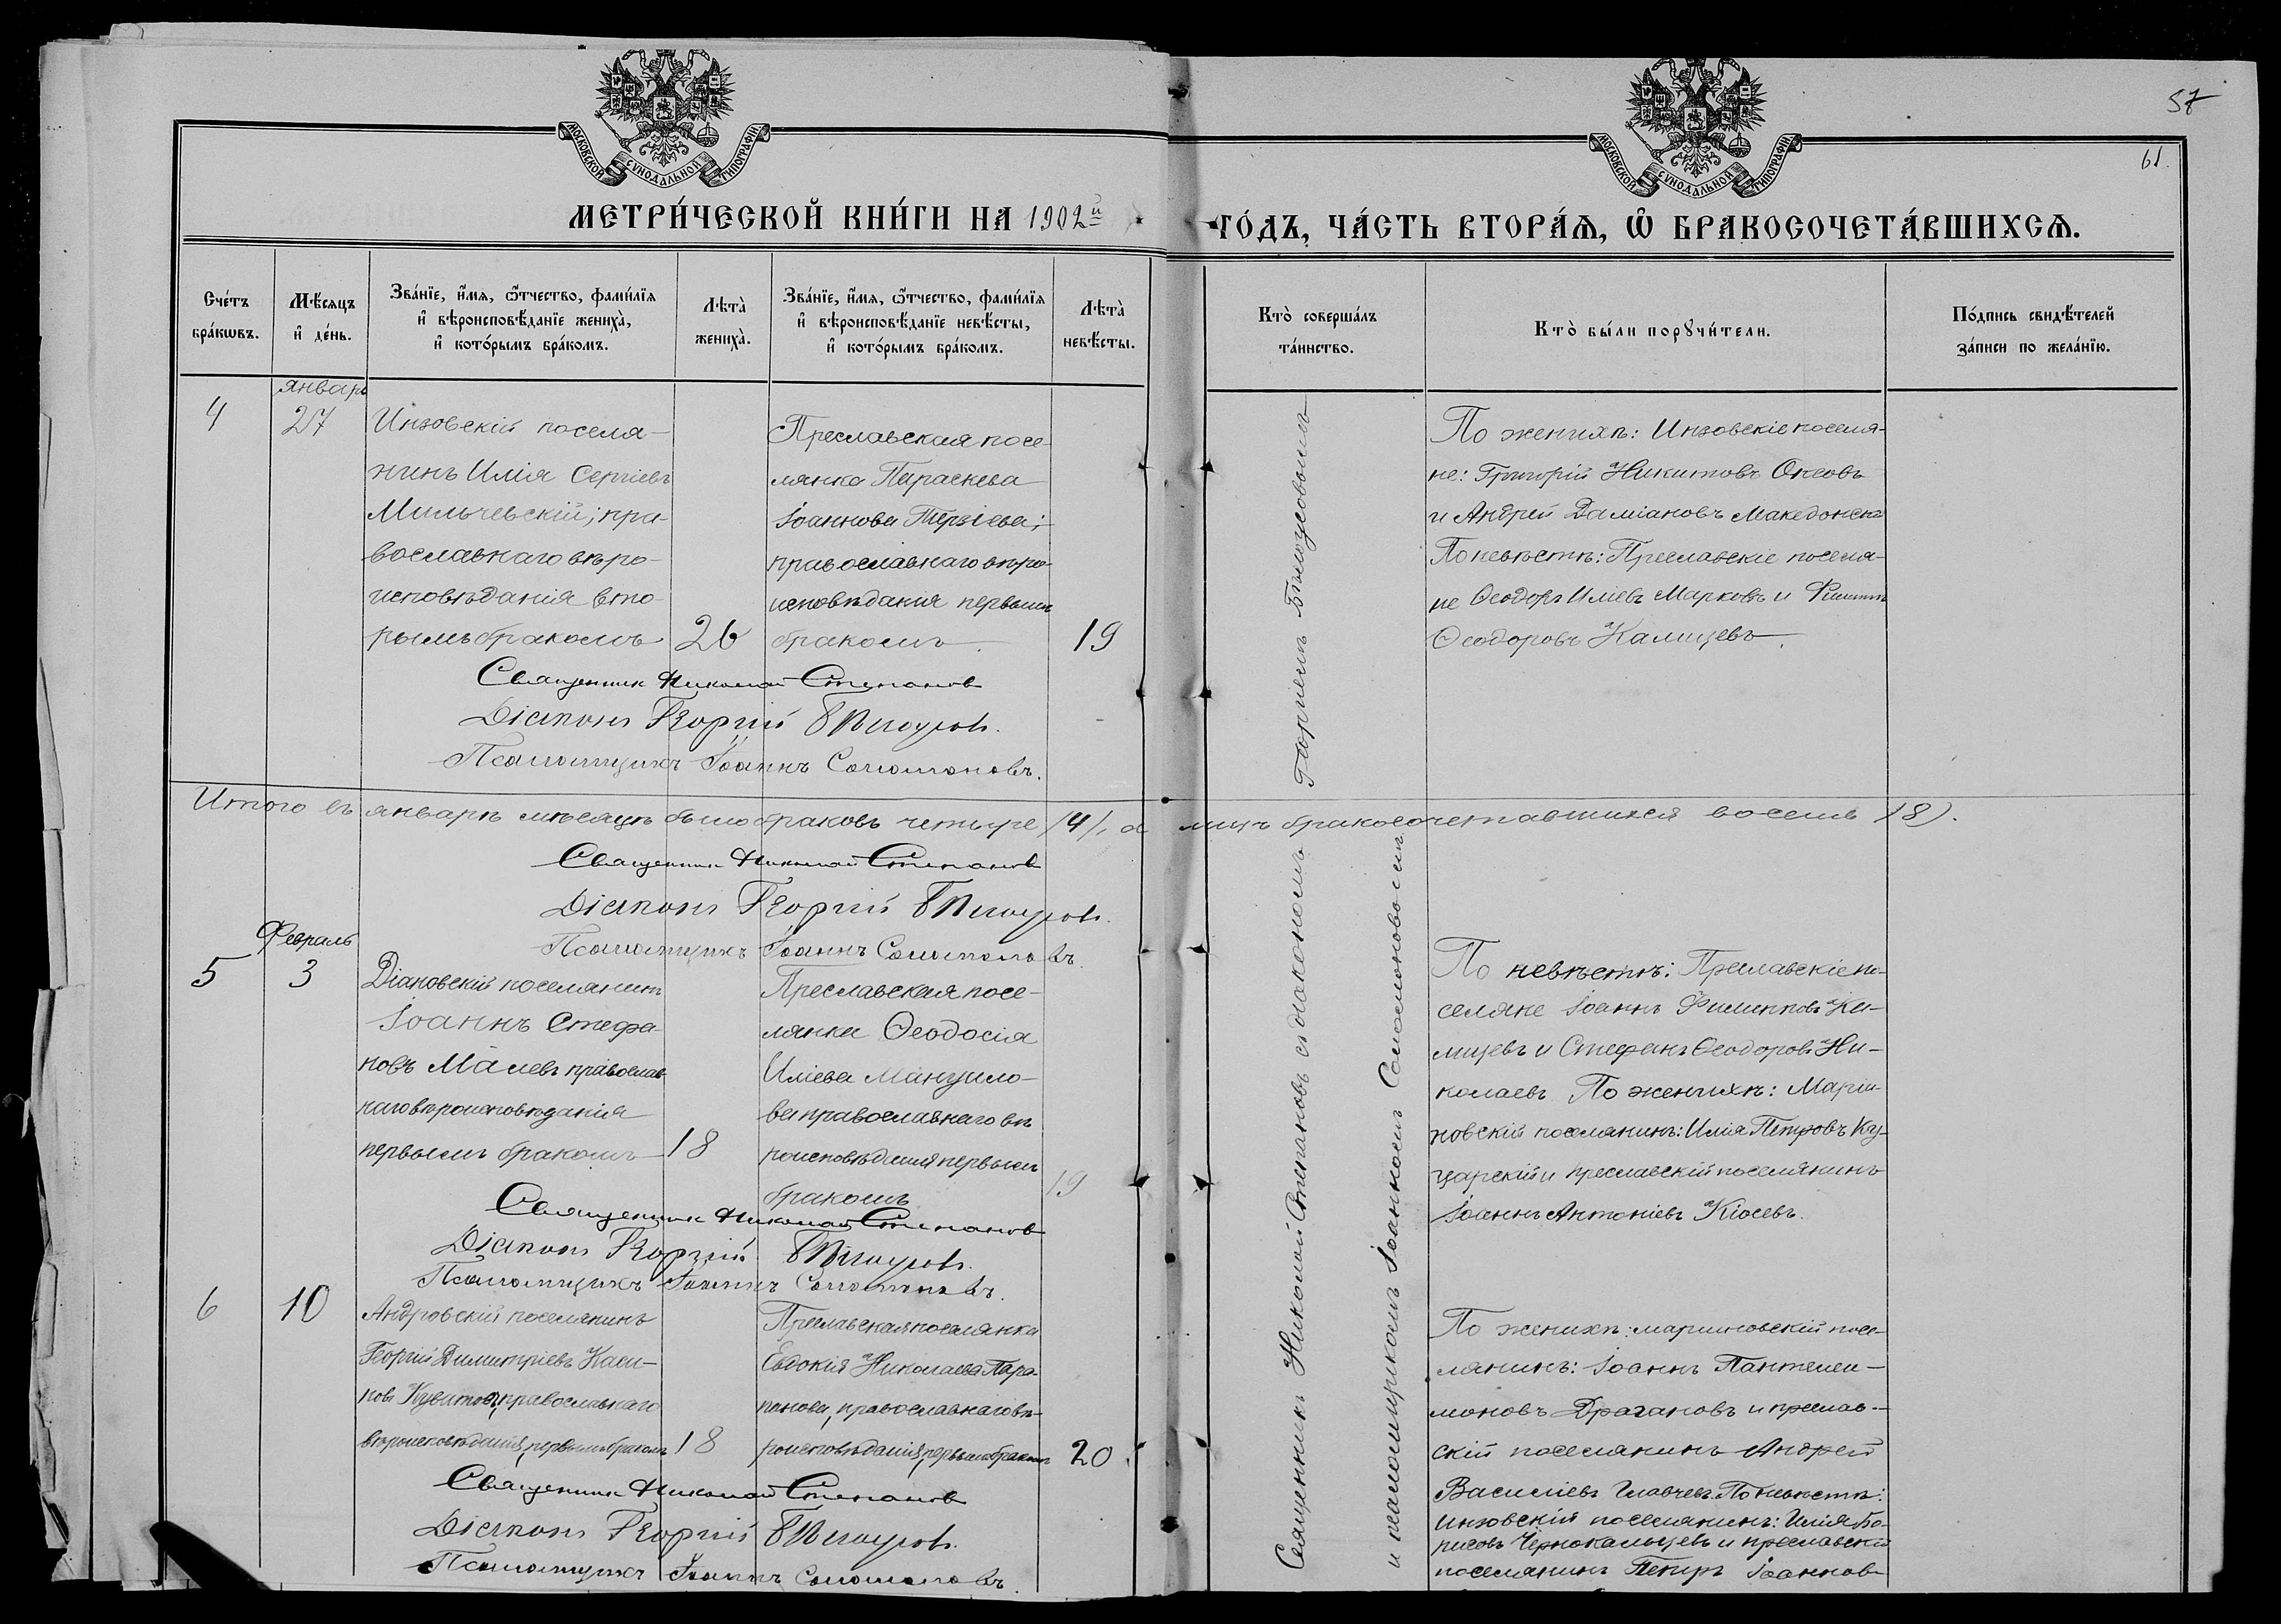 57
61.
МОСКОВСКОЙ СѴНОДАЛЬНОЙ ТИПОГРАФІИ
МОСКОВСКОЙ СѴНОДАЛЬНОЙ ТИПОГРАФІИ
МЕТРИ́ЧЕСКОЙ КНИ́ГИ НА 1902й
ГО́ДЪ, ЧА́СТЬ ВТОРА́Ѧ, Ѽ БРАКОСОЧЕТА́ВШИХСѦ.
Сче́тъ
бра́кѡвъ.
Мѣ́сяцъ
и҆ де́нь.
Зва́нїе, и҆́мя, ѻ҆́тчество, фами́лїя
и҆ вѣроисповѣ́данїе жениха̀,
и҆ кото́рымъ бра́комъ.
Лѣта̀
жениха̀.
Зва́нїе, и҆́мя, ѻ҆́тчество, фами́лїя
и҆ вѣроисповѣ́данїе невѣ́сты,
и҆ кото́рымъ бра́комъ.
Лѣта̀
невѣ́сты.
Кто̀ соверша́лъ
та́инство.
Кто̀ бы́ли порꙋчи́тели.
По́дпись свидѣ́телей
за́писи по жела́нїю.
4
Январь
27
Инзовскій поселя-
нинъ Илія Сергіевъ
Мильчевскій; пра-
вославнаго вѣро-
исповѣданія вто-
рымъ бракомъ
26
Преславская посе-
лянка Параскева
Іоаннова Терзіева;
православнаго вѣро-
исповѣданія первымъ
бракомъ.
19
По женихѣ: Инзовскіе поселя-
не: Григорій Никитовъ Оксовъ
и Андрей Даміановъ Македонскі
По невѣстѣ: Преславскіе поселя-
не Ѳеодоръ Иліевъ Марковъ и Филиппъ
Ѳеодоровъ Калищевъ.
Священник Николай Степанов
Діаконъ Георгій
Псаломщикъ Іоаннъ Соломоновъ.
Итого въ январѣ мѣсяцѣ было браковъ четыре /4/, а лицъ бракосочетавшихся восемь /8/.
Священник Николай Степанов
Діаконъ Георгій
Псаломщикъ Іоаннъ Соломоновъ.
5
Февраль
3
Діановскій поселянинъ
Іоаннъ Стефа-
новъ Малевъ православ-
наго вѣроисповѣданія
первымъ бракомъ
18
Преславская посе-
лянка Ѳеодосія
Иліева Манзуло-
ва православнаго вѣ-
роисповѣданія первымъ
бракомъ
19
По невѣстѣ: Преславскіе по-
селяне Іоаннъ Филипповъ Ка-
лищевъ и Стефанъ Ѳеодоровъ Ни-
колаевъ По женихѣ: Марiи-
новскій поселянинъ: Илія Петровъ Ку-
царскій и преславскій поселянинъ
Іоаннъ Антоніевъ Кіосевъ.
Священник Николай Степанов
Діаконъ Георгій
Псаломщикъ Іоаннъ Соломоновъ.
6
10
Андровскій поселянинъ
Георгій Димитріевъ Каси-
православнаго
вѣроисповѣданія, первымъ бракомъ
18
Преславская поселянка
Евдокія Николаева Пара-
панова, православнаго вѣ-
роисповѣданія, первымъ бракомъ
20
По женихѣ: мариновскій посе-
лянинъ: Іоаннъ Пантелеи-
моновъ Драгановъ и преслав-
скій поселянинъ Андрей
Василіевъ Главчевъ. По невѣстѣ:
инзовскій поселянинъ: Илія Бо-
рисовъ Чернокальцевъ и преславскій
поселянинъ Петръ Іоаннов
Священник Николай Степанов
Діаконъ Георгій
Псаломщикъ Іоаннъ Соломоновъ.
Священникъ Николай Степановъ съ діакономъ Георгіемъ
и псаломщикомъ Іоанномъ Соломоновымъ